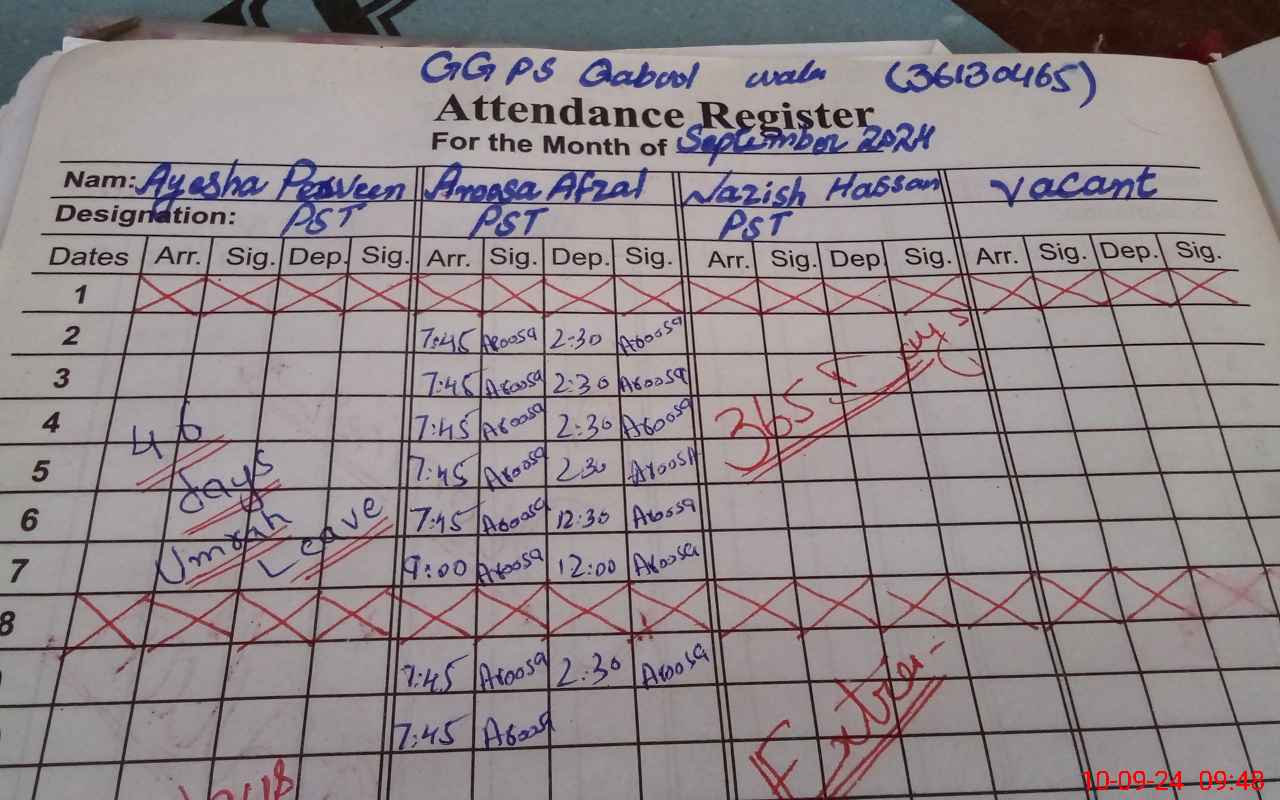 GGPS Qabool wala (36130465)
Attendance Register
For the Month of September 2024
Nam: Ayesha Perveen Aroosa Afzal Nazish Hassan Vacant
Designation: PST PST PST
Dates Arr. Sig. Dep. Sig. Arr. Sig. Dep. Sig. Arr. Sig. Dep. Sig. Arr. Sig. Dep. Sig.
1
2 7:45 Aroosa 2:30 Aroosa
3 7:45 Aroosa 2:30 Aroosa
4 7:45 Aroosa 2:30 Aroosa
5 7:45 Aroosa 2:30 Aroosa
6 7:45 Aroosa 12:30 Aroosa
7 9:00 Aroosa 12:00 Aroosa
8
7:45 Aroosa 2:30 Aroosa
7:45 Aroosa
46
days
Umrah
Leave
365 Days
10-09-24 09:48